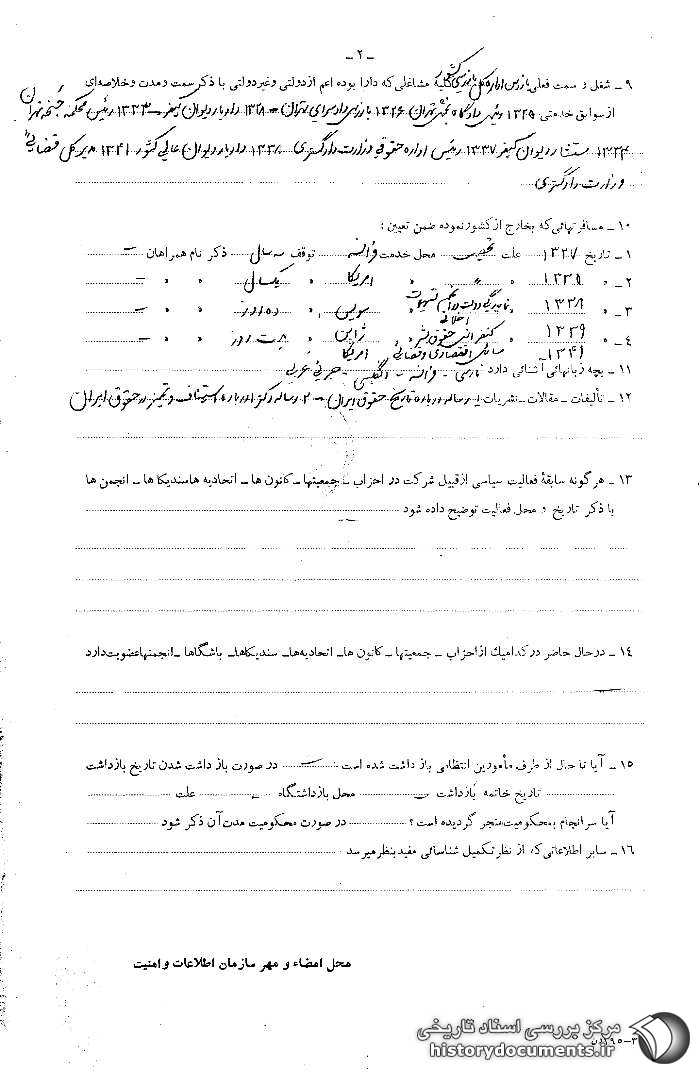 - ۲ -
۹ ـ شغل و سمت فعلی بازرس اداره کل بازرسی کشور کلیهٔ مشاغلی که دارا بوده اعم از دولتی وغیردولتی با ذکر سمت ومدت وخلاصه‌ای
از سوابق خدمتی ۱۳۲۵ رئیس دادگاه بخش تهران ۱۳۲۶ بازرس دادسرای تهران - ۱۳۲۸ دادیار دیوان کیفر - ۱۳۳۳ رئیس محکمه جنحه تهران
۱۳۳۴ مستشار دیوان کیفر ۱۳۳۷ رئیس اداره حقوقی وزارت دادگستری ۱۳۳۸ دادیار دیوان عالی کشور ۱۳۴۱ مدیر کل قضایی
وزارت دادگستری
۱۰ ـ مسافرتهائی که بخارج از کشور نموده ضمن تعیین :
۱ ـ تاریخ ۱۳۲۷ علت تحصیل محل خدمت فرانسه توقف سه سال ذکر نام همراهان -
۲ ـ » ۱۳۳۵ » » » امریکا » یکسال » » » -
۳ ـ » ۱۳۳۸ » نمایندگی دولت در » سویس » ده روز » » » -
۴ ـ » ۱۳۳۹ » کنفرانس حقوق بشر » ژاپن » بیست روز » » » -
۱۳۴۱ مسائل اقتصادی و قضائی امریکا
۱۱ ـ بچه زبانهائی آشنائی دارد فارسی - فرانسه - انگلیسی - جزئی عربی
۱۲ ـ تألیفات ـ مقالات ـ نشریات ۱- رساله درباره تاریخ حقوق ایران - ۲ رساله دکترا درباره استیناف و تمیز در حقوق ایران
۱۳ ـ هرگونه سابقهٔ فعالیت سیاسی از قبیل شرکت در احزاب ـ جمعیتها ـ کانون ها ـ اتحادیه هاسندیکا ها ـ انجمن ها
با ذکر تاریخ و محل فعالیت توضیح داده شود
۱۴ ـ درحال حاضر در کدامیك از احزاب ـ جمعیتها ـ کانون ها ـ اتحادیه‌ها ـ سندیکاها ـ باشگاها ـ انجمنهاعضویت دارد
۱۵ ـ آیا تا حال از طرف مأمورین انتظامی باز داشت شده است - در صورت باز داشت شدن تاریخ بازداشت
تاریخ خاتمه بازداشت - محل بازداشتگاه - علت
آیا سرانجام بمحکومیت منجر گردیده است ؟ - در صورت محکومیت مدت آن ذکر شود
۱۶ ـ سایر اطلاعاتی که از نظر تکمیل شناسائی مفید بنظر میرسد
محل امضاء و مهر سازمان اطلاعات و امنیت
مرکز بررسی اسناد تاریخی
historydocuments.ir